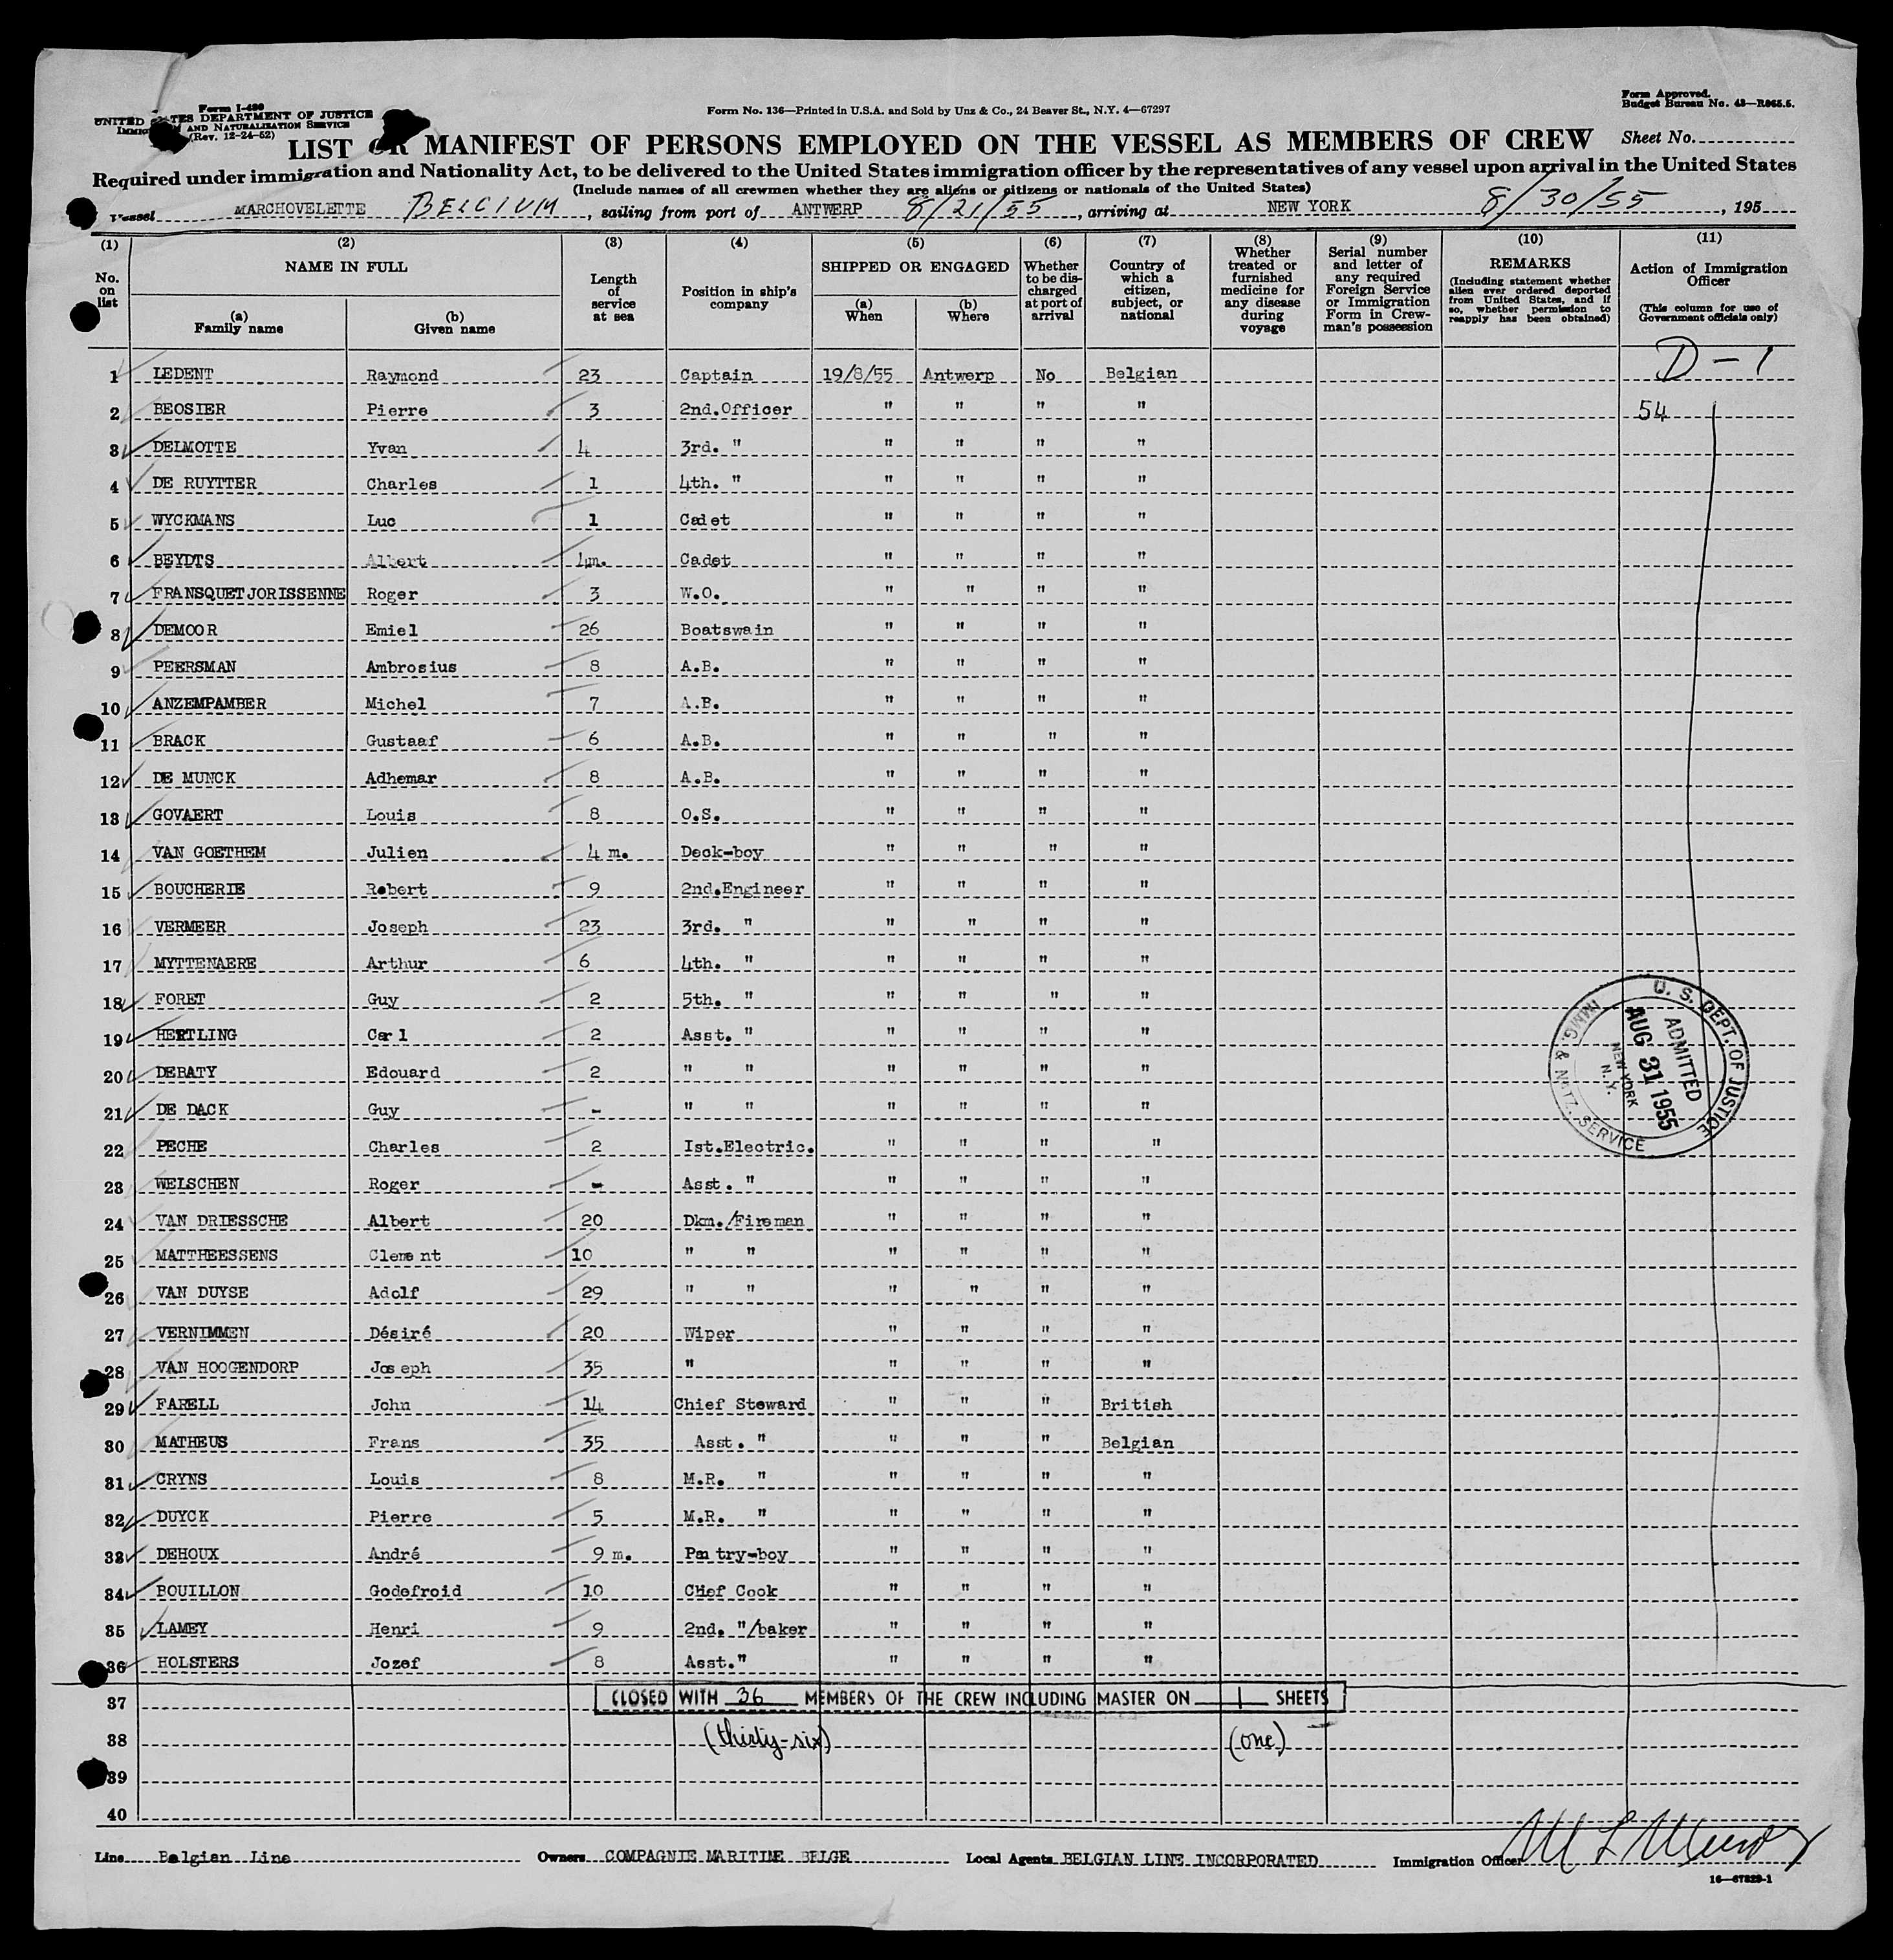 Form I-480
UNITED STATES DEPARTMENT OF JUSTICE
IMMIGRATION AND NATURALIZATION SERVICE
(Rev. 12-24-52)
Form No. 136—Printed in U.S.A. and Sold by Unz & Co., 24 Beaver St., N.Y. 4—67297
Form Approved.
Budget Bureau No. 43—R065.5.
LIST OR MANIFEST OF PERSONS EMPLOYED ON THE VESSEL AS MEMBERS OF CREW
Sheet No.
Required under immigration and Nationality Act, to be delivered to the United States immigration officer by the representatives of any vessel upon arrival in the United States
(Include names of all crewmen whether they are aliens or citizens or nationals of the United States)
Vessel MARCHOVELETTE BELGIUM, sailing from port of ANTWERP 8/21/55, arriving at NEW YORK 8/30/55, 195
(1) (2) (3) (4) (5) (6) (7) (8) (9) (10) (11)
No. on list
NAME IN FULL
(a) Family name
(b) Given name
Length of service at sea
Position in ship's company
SHIPPED OR ENGAGED
(a) When
(b) Where
Whether to be discharged at port of arrival
Country of which a citizen, subject, or national
Whether treated or furnished medicine for any disease during voyage
Serial number and letter of any required Foreign Service or Immigration Form in Crewman's possession
REMARKS
(Including statement whether alien ever ordered deported from United States, and if so, whether permission to reapply has been obtained)
Action of Immigration Officer
(This column for use of Government officials only)
1 LEDENT Raymond 23 Captain 19/8/55 Antwerp No Belgian D-1
2 BEOSIER Pierre 3 2nd.Officer " " " " 54
3 DELMOTTE Yvan 4 3rd. " " " " "
4 DE RUYTTER Charles 1 4th. " " " " "
5 WYCKMANS Luc 1 Cadet " " " "
6 BEYDTS Albert 4m. Cadet " " " "
7 FRANSQUETJORISSENNE Roger 3 W.O. " " " "
8 DEMOOR Emiel 26 Boatswain " " " "
9 PEERSMAN Ambrosius 8 A.B. " " " "
10 ANZEMPAMBER Michel 7 A.B. " " " "
11 BRACK Gustaaf 6 A.B. " " " "
12 DE MUNCK Adhemar 8 A.B. " " " "
13 GOVAERT Louis 8 O.S. " " " "
14 VAN GOETHEM Julien 4 m. Deck-boy " " " "
15 BOUCHERIE Robert 9 2nd.Engineer " " " "
16 VERMEER Joseph 23 3rd. " " " " "
17 MYTTENAERE Arthur 6 4th. " " " " "
18 FORET Guy 2 5th. " " " " "
19 HERTLING Carl 2 Asst. " " " " "
20 DEBATY Edouard 2 " " " " " "
21 DE DACK Guy - " " " " " "
22 PECHE Charles 2 Ist.Electric. " " " "
23 WELSCHEN Roger - Asst. " " " " "
24 VAN DRIESSCHE Albert 20 Dkm./Fireman " " " "
25 MATTHEESSENS Clement 10 " " " " " "
26 VAN DUYSE Adolf 29 " " " " " "
27 VERNIMMEN Désiré 20 Wiper " " " "
28 VAN HOOGENDORP Joseph 35 " " " " "
29 FARELL John 14 Chief Steward " " " British
30 MATHEUS Frans 35 Asst. " " " " Belgian
31 CRYNS Louis 8 M.R. " " " " "
32 DUYCK Pierre 5 M.R. " " " " "
33 DEHOUX André 9 m. Pantry-boy " " " "
34 BOUILLON Godefroid 10 Chief Cook " " " "
35 LAMEY Henri 9 2nd. "/baker " " " "
36 HOLSTERS Jozef 8 Asst." " " " "
37 CLOSED WITH 36 MEMBERS OF THE CREW INCLUDING MASTER ON 1 SHEETS
38 (thirty-six) (one)
39
40
U. S. DEPT. OF JUSTICE
ADMITTED
AUG 31 1955
NEW YORK
N.Y.
IMMIG. & NATZ. SERVICE
Line Belgian Line Owners COMPAGNIE MARITIME BELGE Local Agents BELGIAN LINE INCORPORATED Immigration Officer
16—67329-1